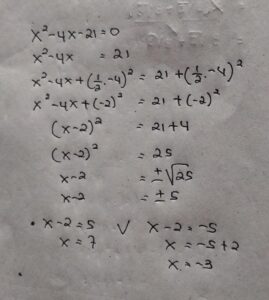 x²-4x-21=0
x²-4x = 21
x²-4x+(½.-4)² = 21+(½.-4)²
x²-4x+(-2)² = 21+(-2)²
(x-2)² = 21+4
(x-2)² = 25
x-2 = ±√25
x-2 = ±5
• x-2=5 V x-2=-5
x=7 x=-5+2
x=-3